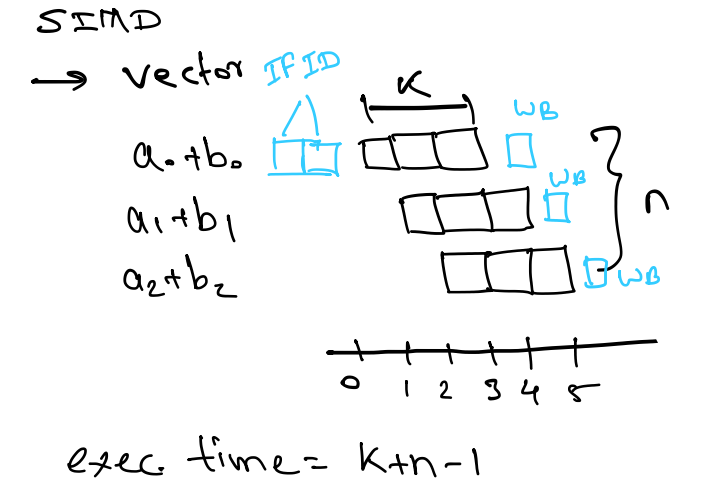 SIMD
→ vector IF ID
K
WB
a₀+b₀
WB
a₁+b₁
n
a₂+b₂
WB
0 1 2 3 4 5
exec. time = K+n-1